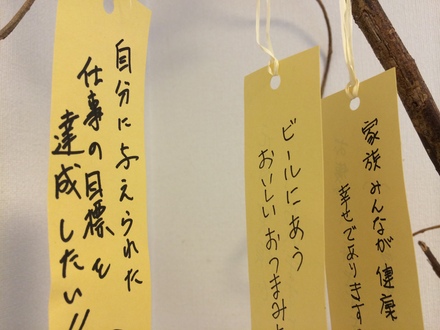 自分に与えられた
仕事の目標を
達成したい!!
ビールにあう
おいしいおつまみ
家族みんなが健康
幸せであります